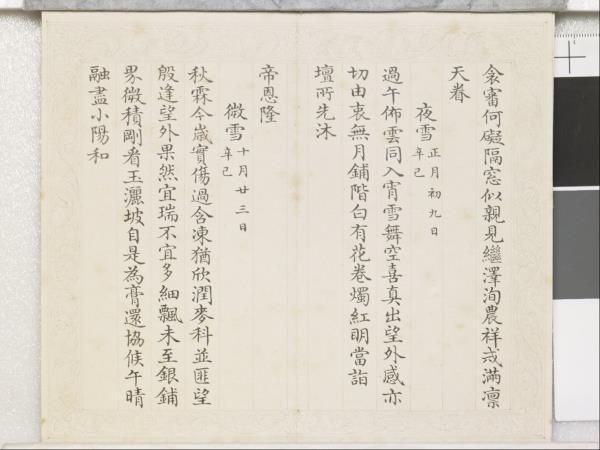 衾審何礙隔窓似親見繼澤洵農祥戒滿凜
天眷
夜雪
正月初九日
辛巳
過午佈雲同入宵雪舞空喜真出望外感亦
切由衷無月鋪階白有花卷燭紅明當詣
壇所先沐
帝恩隆
微雪
十月廿三日
辛巳
秋霖今歲實傷過含凍猶欣潤麥科並匪望
殷逢望外果然宜瑞不宜多細飄未至銀鋪
界微積剛看玉灑坡自是為膏還協候午晴
融盡小陽和